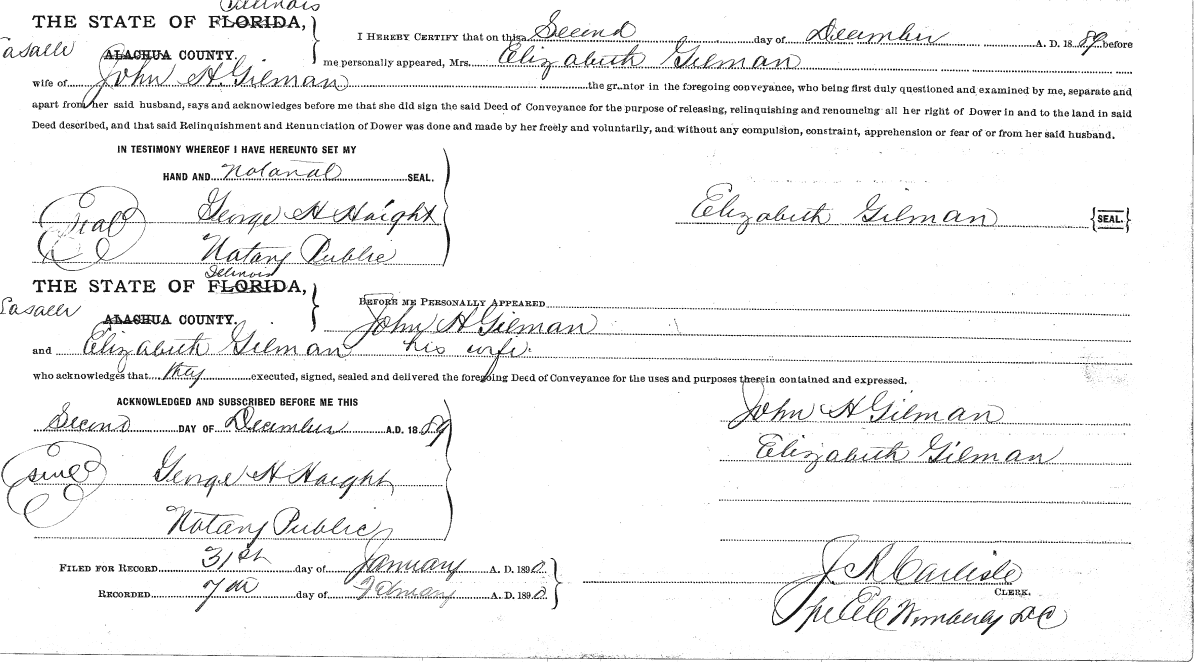 Illinois
THE STATE OF FLORIDA,
I HEREBY CERTIFY that on this Second day of December A. D. 1889 before
Lasalle ALACHUA COUNTY.
me personally appeared, Mrs. Elizabeth Gilman
wife of John H. Gilman the gr..ntor in the foregoing conveyance, who being first duly questioned and examined by me, separate and
apart from her said husband, says and acknowledges before me that she did sign the said Deed of Conveyance for the purpose of releasing, relinquishing and renouncing all her right of Dower in and to the land in said
Deed described, and that said Relinquishment and Renunciation of Dower was done and made by her freely and voluntarily, and without any compulsion, constraint, apprehension or fear of or from her said husband.
IN TESTIMONY WHEREOF I HAVE HEREUNTO SET MY
HAND AND Notarial SEAL.
Seal George H Haight
Elizabeth Gilman {SEAL.}
Notary Public
Illinois
THE STATE OF FLORIDA,
BEFORE ME PERSONALLY APPEARED
Lasalle ALACHUA COUNTY.
John H Gilman
and Elizabeth Gilman his wife.
who acknowledges that they executed, signed, sealed and delivered the foregoing Deed of Conveyance for the uses and purposes therein contained and expressed.
ACKNOWLEDGED AND SUBSCRIBED BEFORE ME THIS
Second DAY OF December A.D. 1889
John H Gilman
Elizabeth Gilman
George H Haight
Notary Public
FILED FOR RECORD 31st day of January A. D. 1890
RECORDED 7th day of February A. D. 1890
J A Carlisle
CLERK.
Wimberly DC